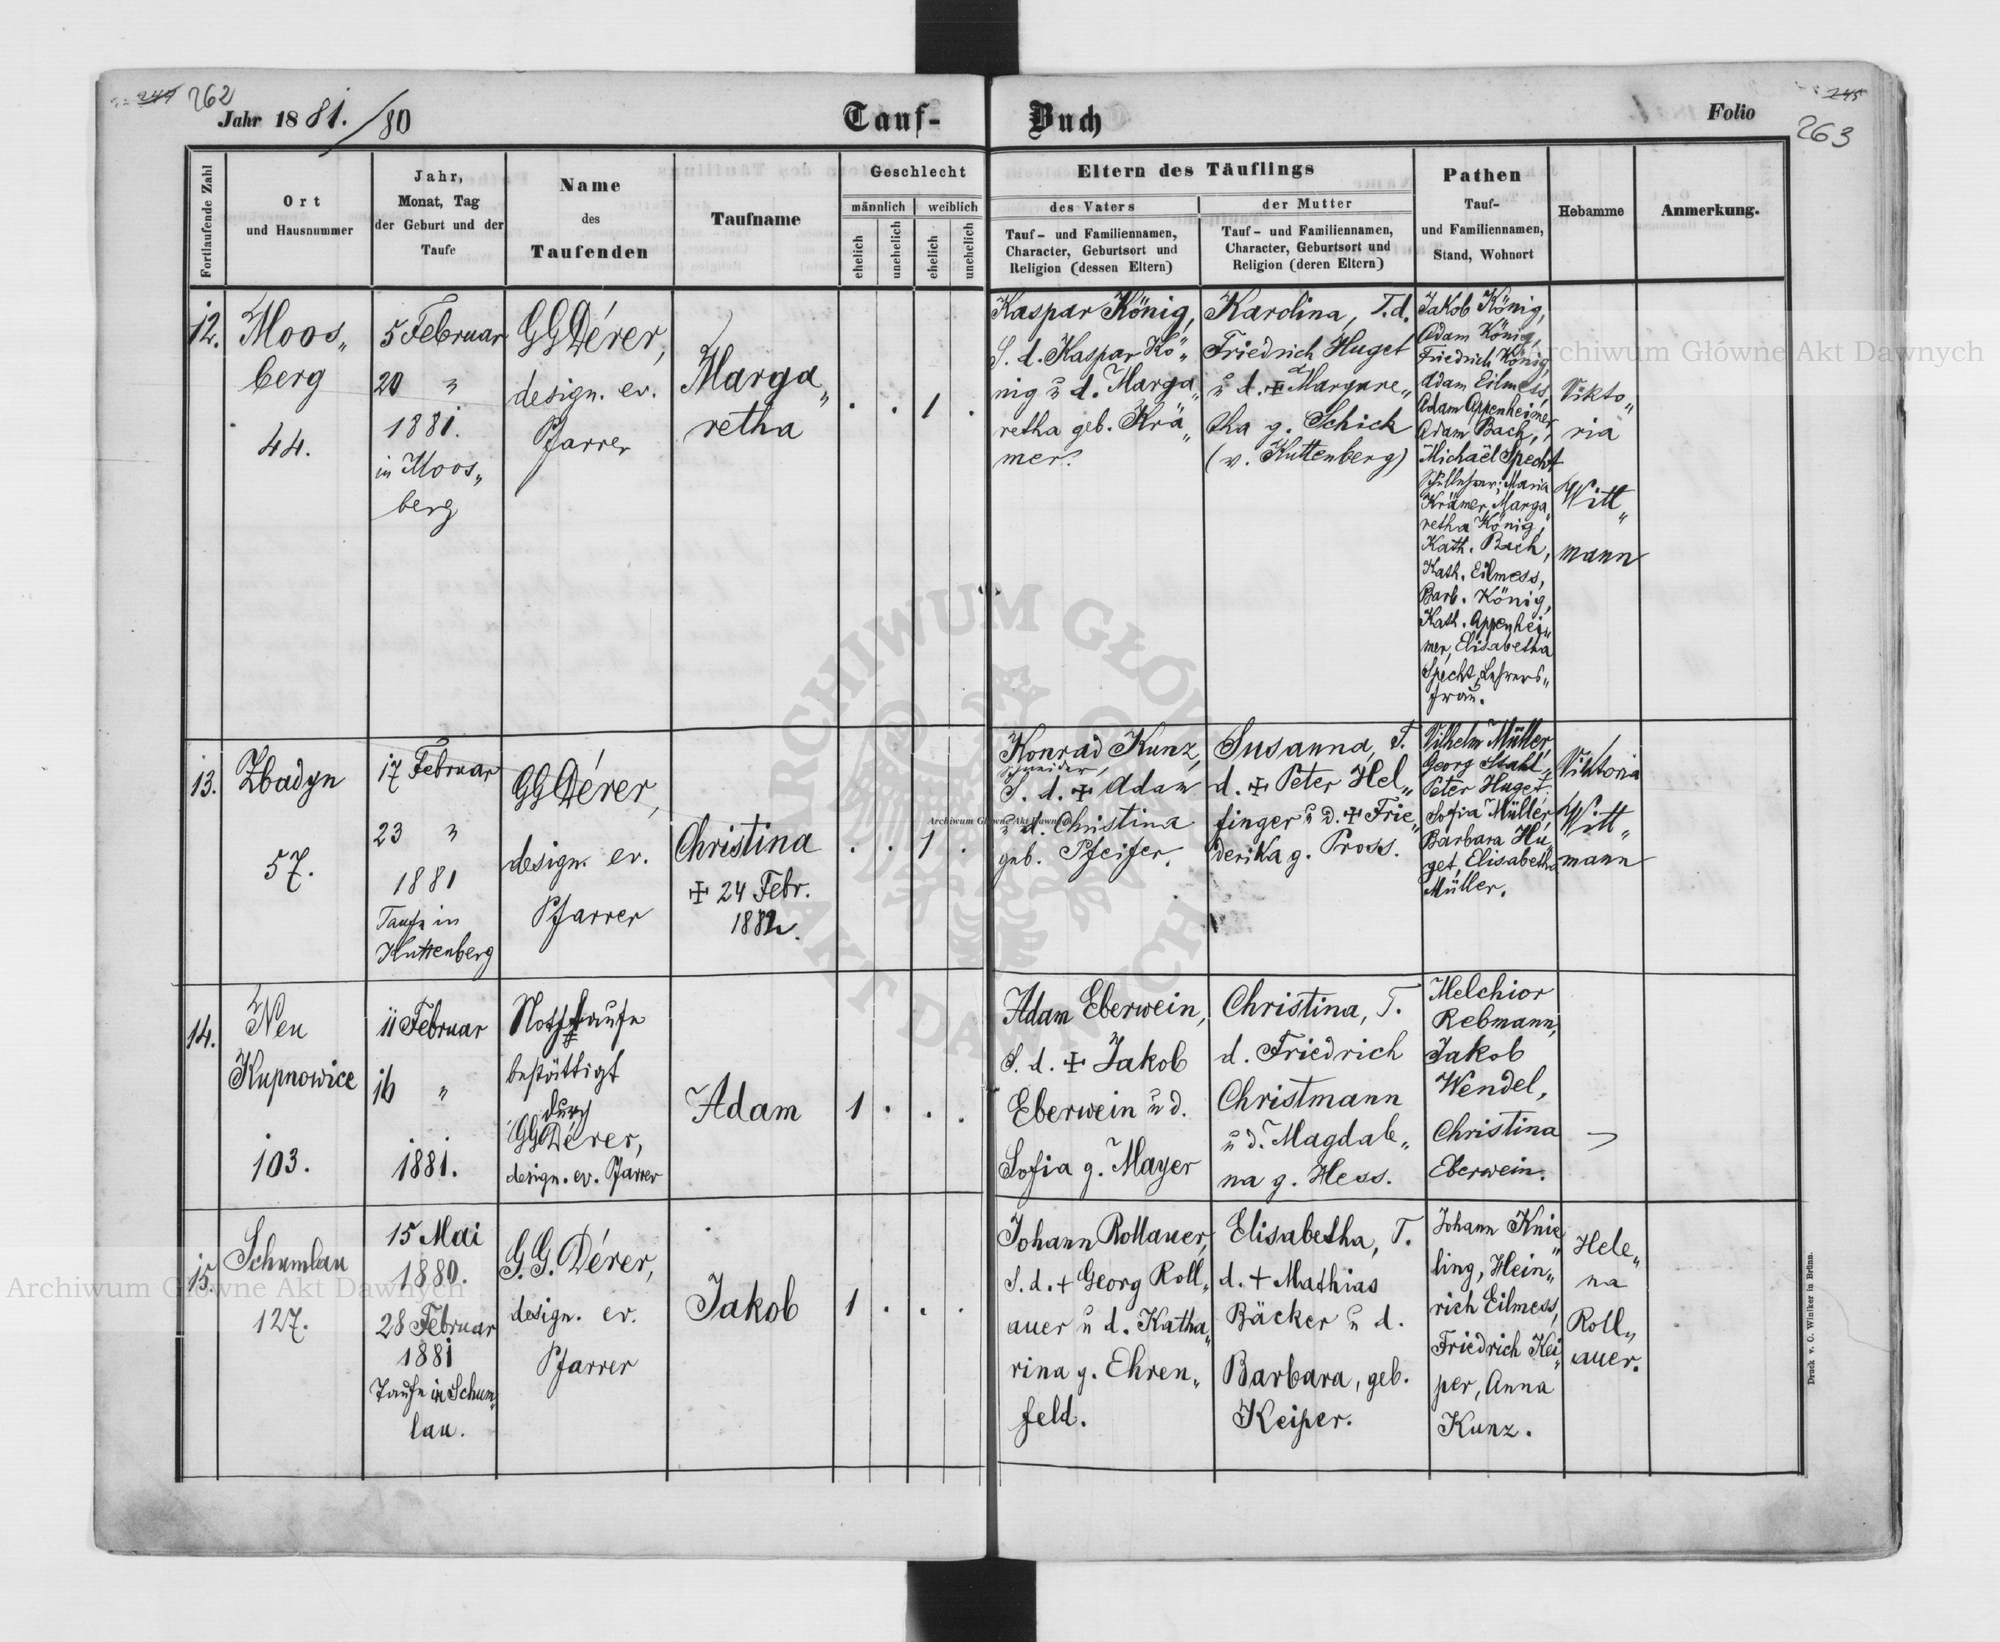 262
Jahr 1881./80
Tauf-
Buch
Folio
245
263
Fortlaufende Zahl
Ort
und Hausnummer
Jahr,
Monat, Tag
der Geburt und der
Taufe
Name
des
Taufenden
Taufname
Geschlecht
männlich
weiblich
ehelich
unehelich
ehelich
unehelich
Eltern des Täuflings
des Vaters
Tauf- und Familiennamen,
Character, Geburtsort und
Religion (dessen Eltern)
der Mutter
Tauf- und Familiennamen,
Character, Geburtsort und
Religion (deren Eltern)
Pathen
Tauf-
und Familiennamen,
Stand, Wohnort
Hebamme
Anmerkung.
12.
Moos„
berg
44.
5 Februar
20 "
1881.
in Moos„
berg
GGDérer,
design. ev.
Pfarrer
Marga„
retha
. . 1 .
Kaspar König,
S. d. Kaspar Kö„
nig u d. Marga„
retha geb. Krä„
mer.
Karolina, T.d.
Friedrich Huget
u d. + Margare„
tha g. Schick
(v. Kuttenberg)
Jakob König,
Adam König,
Friedrich König,
Adam Eilmess,
Adam Appenheimer,
Adam Bach,
Michael Specht
Schullehrer; Maria
Krämer, Marga„
retha König,
Kath. Bach,
Kath. Eilmess,
Barb. König,
Kath. Appenhei„
mer, Elisabetha
Specht, Lehrers„
frau.
Vikto„
ria
Witt„
mann
13.
Zbadyn
57.
17 Februar
23 "
1881
Taufe in
Kuttenberg
GGDérer,
design. ev.
Pfarrer
Christina
+ 24 Febr.
1882.
. . 1 .
Konrad Kunz,
Schneider,
S. d. + Adam
u d. Christina
geb. Pfeifer.
Susanna, T.
d. + Peter Hel„
finger u d. + Frie„
derika g. Pross.
Wilhelm Müller,
Georg Stahl,
Peter Huget.
Sofia Müller,
Barbara Hu„
get, Elisabetha
Müller.
Viktoria
Witt„
mann
14.
Neu
Kupnowice
103.
11 Februar
16 "
1881.
Nothtaufe
bestättigt
durch
GGDérer,
design. ev. Pfarrer
Adam
1 . . .
Adam Eberwein,
S. d. + Jakob
Eberwein u d.
Sofia g. Mayer
Christina, T.
d. Friedrich
Christmann
u d. Magdale„
na g. Hess.
Melchior
Rebmann,
Jakob
Wendel,
Christina
Eberwein.
15.
Schumlau
127.
15 Mai
1880.
28 Februar
1881
Taufe in Schum„
lau.
G.G. Dérer,
design. ev.
Pfarrer
Jakob
1 . . .
Johann Rollauer,
S. d. + Georg Roll„
auer u d. Katha„
rina g. Ehren„
feld.
Elisabetha, T.
d. + Mathias
Bäcker u d.
Barbara, geb.
Keiper.
Johann Knie„
ling, Hein„
rich Eilmess,
Friedrich Kei„
per, Anna
Kunz.
Hele„
na
Roll„
auer.
Druck v. C. Winiker in Brünn.
Archiwum Główne Akt Dawnych
Archiwum Główne Akt Dawnych
Archiwum Główne Akt Dawnych
ARCHIWUM GŁÓWNE
AKT DAWNYCH